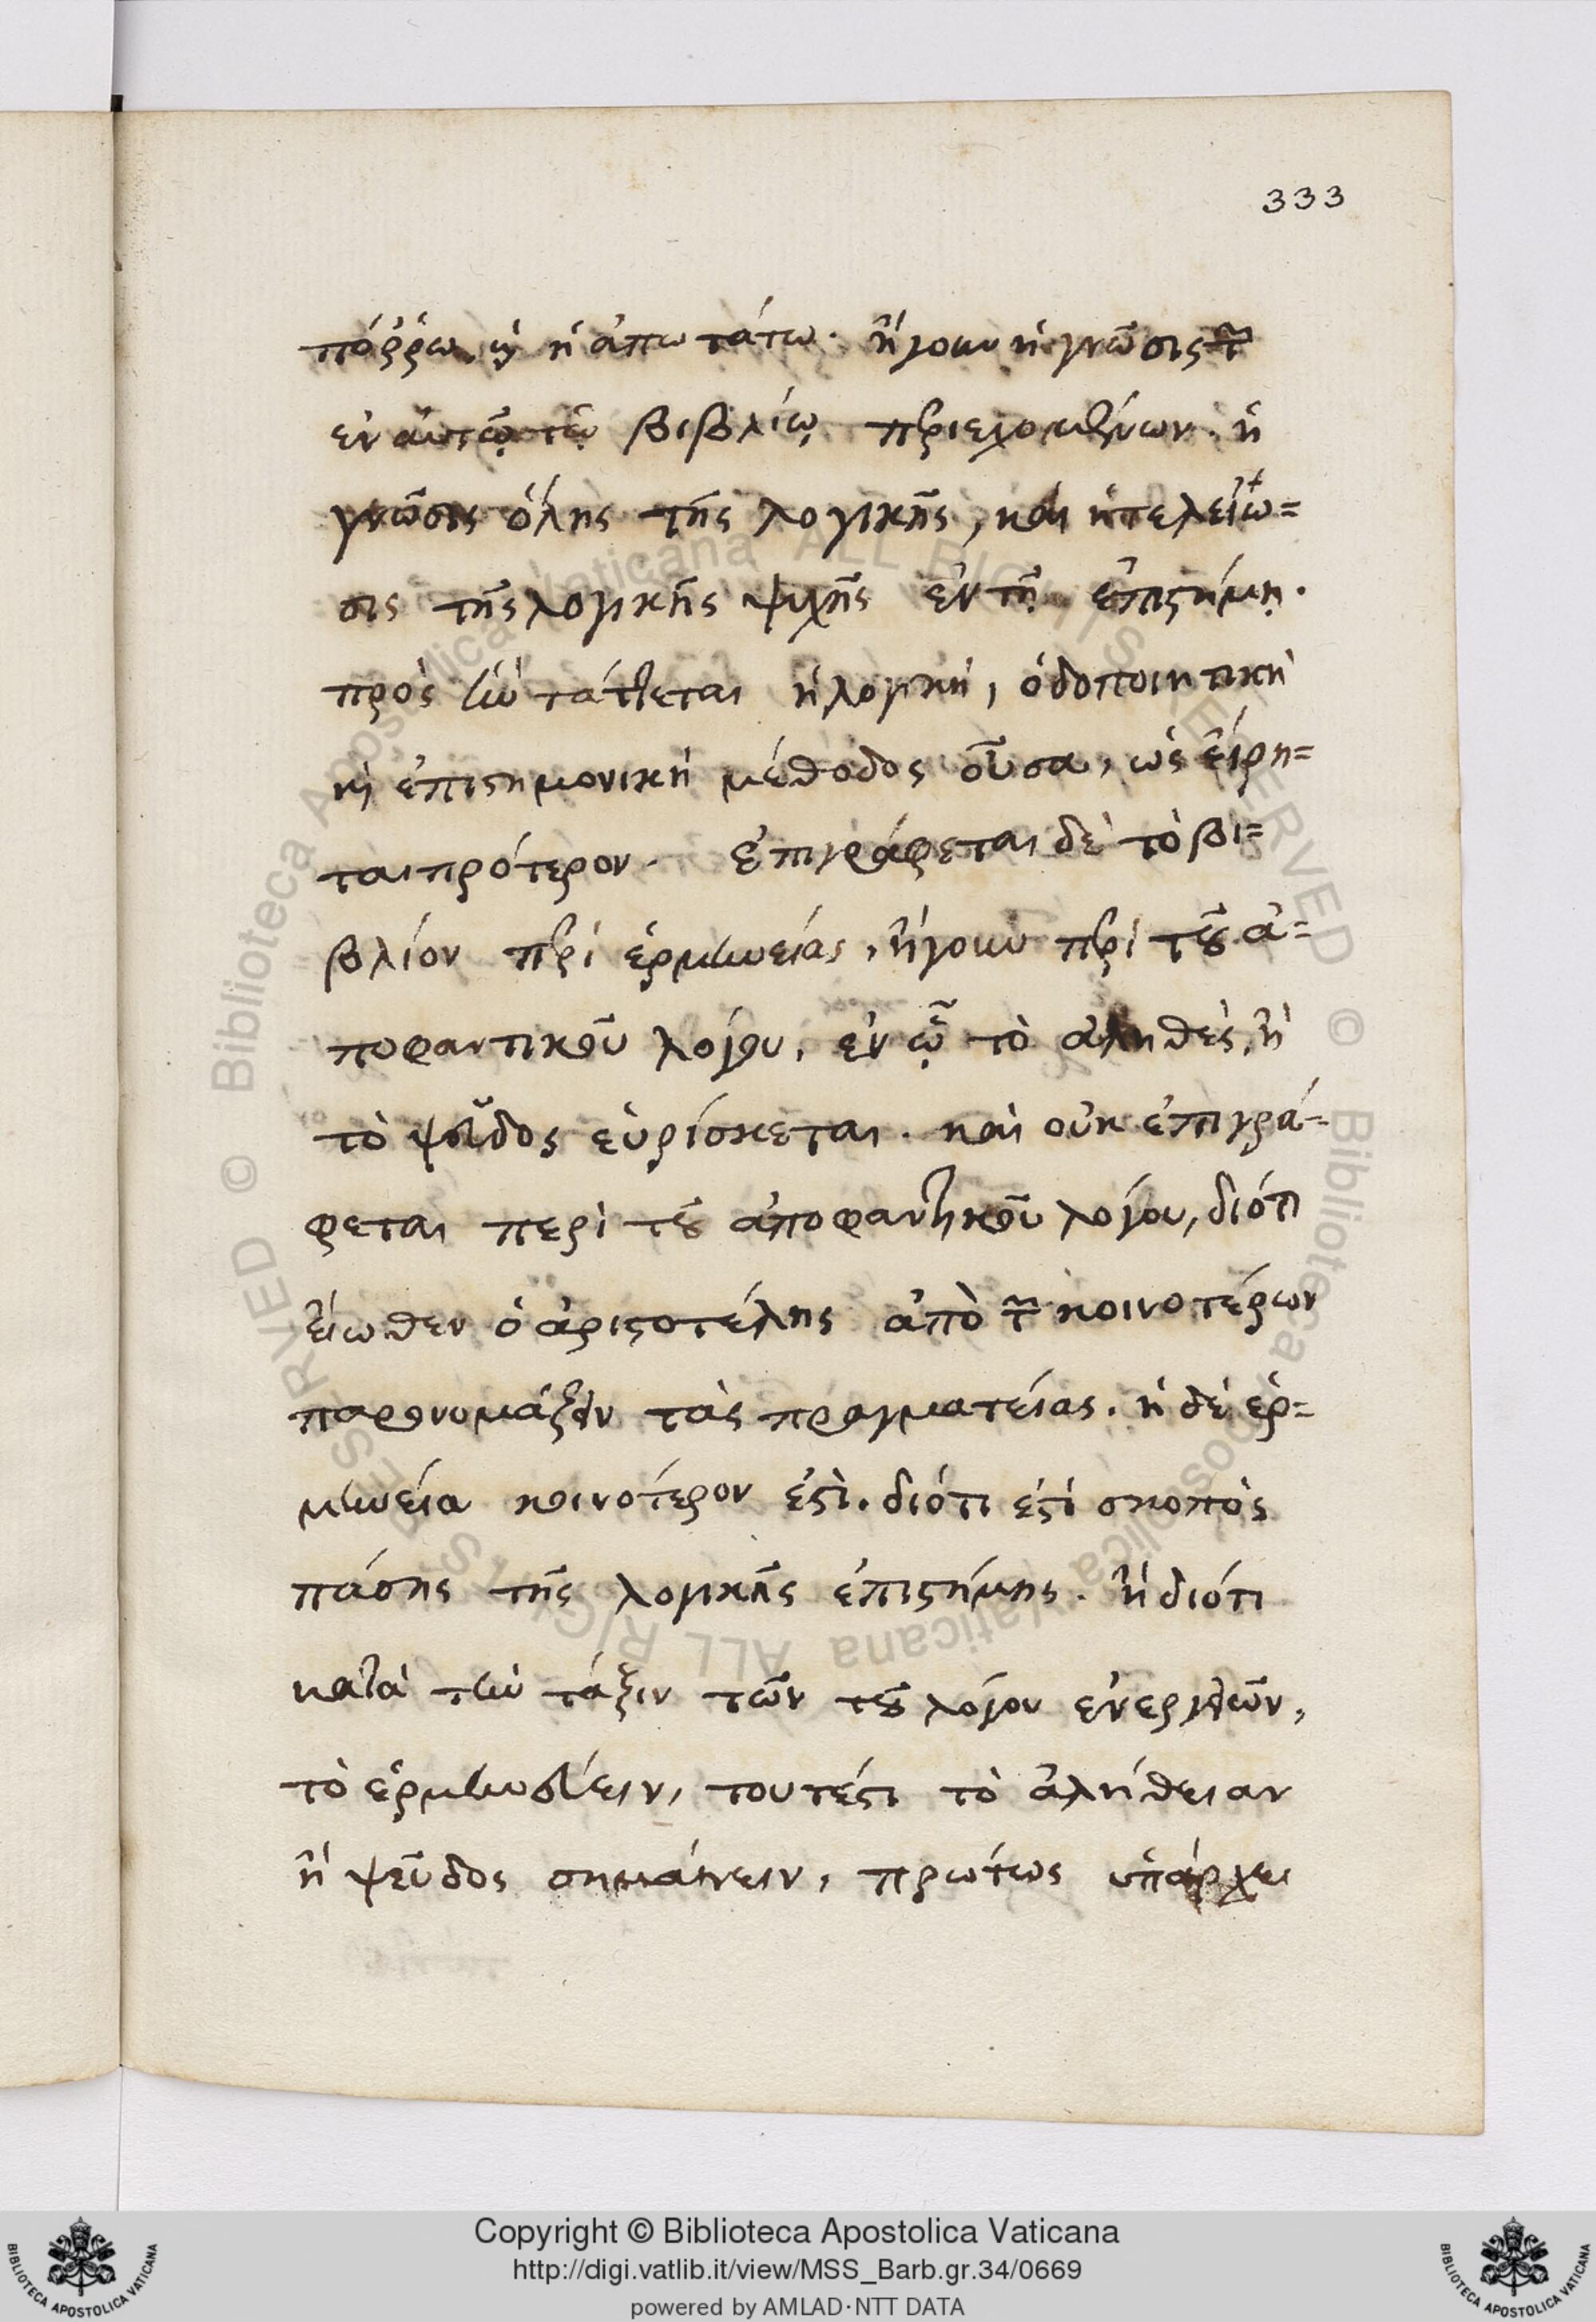 333
πόῤῥω, ϗ ἡ ἀπωτάτω. ἤγουν ἡ γνῶσις τῶν
ἐν αὐτῷ τῷ βιβλίῳ περιεχομένων. ἡ
γνῶσις ὅλης τῆς λογικῆς, καὶ ἡ τελείω=
σις τῆς λογικῆς ψυχῆς ἐν τῇ ἐπιστήμῃ.
πρὸς ἣν τάττεται ἡ λογικὴ, ὁδοποιητικὴ
ϗ ἐπιστημονικὴ μέθοδος οὖσα, ὡς εἴρη=
ται πρότερον. ἐπιγράφεται δὲ τὸ βι=
βλίον περὶ ἑρμηνείας, ἤγουν περὶ τοῦ ἀ=
ποφαντικοῦ λόγου, ἐν ᾧ τὸ ἀληθὲς, ἢ
τὸ ψεῦδος εὑρίσκεται. καὶ οὐκ ἐπιγρά-
φεται περὶ τοῦ ἀποφαντικοῦ λόγου, διότι
εἴωθεν ὁ ἀριστοτέλης ἀπὸ τῶν κοινοτέρων
παρονομάζειν τὰς πραγματείας. ἡ δὲ ἑρ=
μηνεία κοινότερον ἐστὶ. διότι ἐστὶ σκοπὸς
πάσης τῆς λογικῆς ἐπιστήμης. ἢ διότι
κατὰ τὴν τάξιν τῶν τοῦ λόγου ἐνεργειῶν,
τὸ ἑρμηνεύειν, τουτέστι τὸ ἀλήθειαν
ἢ ψεῦδος σημαίνειν, πρώτως ὑπάρχει
Copyright © Biblioteca Apostolica Vaticana
http://digi.vatlib.it/view/MSS_Barb.gr.34/0669
powered by AMLAD·NTT DATA